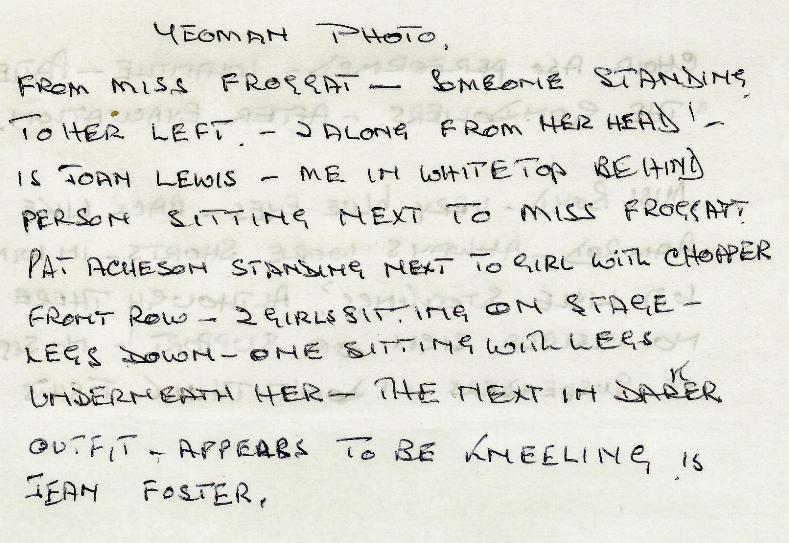 YEOMAN PHOTO.
FROM MISS FROGGAT — SOMEONE STANDING
TO HER LEFT. - 2 ALONG FROM HER HEAD! -
IS JOAN LEWIS - ME IN WHITE TOP BEHIND
PERSON SITTING NEXT TO MISS FROGGATT
PAT ACHESON STANDING NEXT TO GIRL WITH CHOPPER
FRONT ROW - 2 GIRLS SITTING ON STAGE -
LEGS DOWN - ONE SITTING WITH LEGS
UNDERNEATH HER - THE NEXT IN DARKER
OUTFIT - APPEARS TO BE KNEELING IS
JEAN FOSTER.